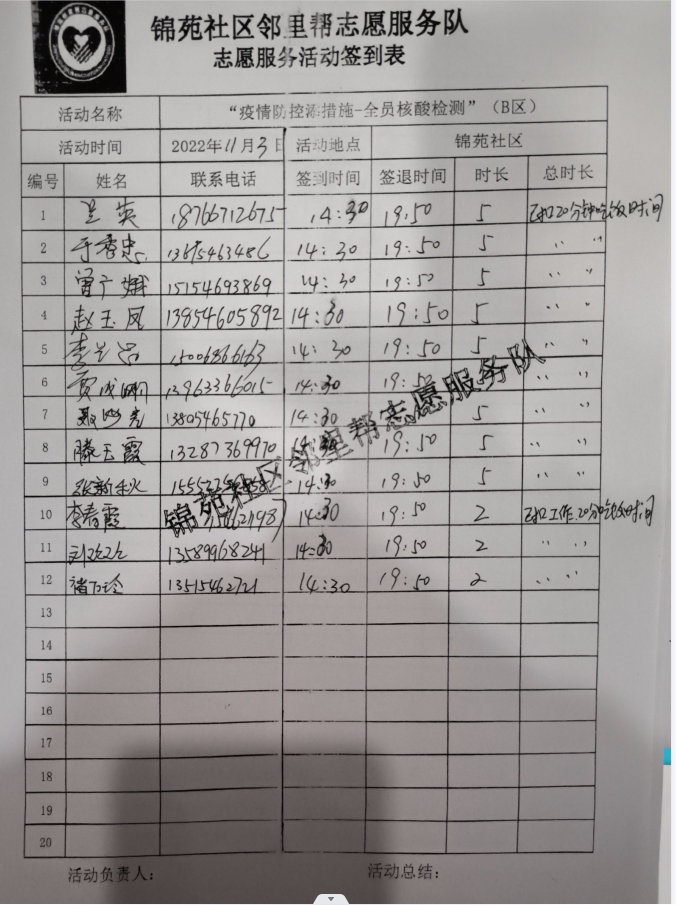 锦苑社区邻里帮志愿服务队
志愿服务活动签到表
活动名称 “疫情防控添措施-全员核酸检测”（B区）
活动时间 2022年11月3日 活动地点 锦苑社区
编号 姓名 联系电话 签到时间 签退时间 时长 总时长
1 吴英 18766712675 14:30 19:50 5 扣20分钟吃饭时间
2 于秀忠 14:30 19:50 5 〃 〃
3 曾广娥 15154693869 14:30 19:50 5 〃 〃
4 赵玉凤 13854605892 14:30 19:50 5 〃 〃
5 李兰 14:30 19:50 5 〃 〃
6 贾 13963366015 14:30 19:50 〃 〃
7 13805465770 14:30 5 〃 〃
8 滕玉霞 13287369970 19:50 5 〃 〃
9 张新秋 14:30 19:50 5 〃 〃
10 李春霞 14:30 19:50 2 扣工作20分吃饭时间
11 刘 13589968241 14:30 19:50 2 〃 〃
12 褚 13515462721 14:30 19:50 2 〃 〃
13
14
15
16
17
18
19
20
活动负责人： 活动总结：
锦苑社区邻里帮志愿服务队